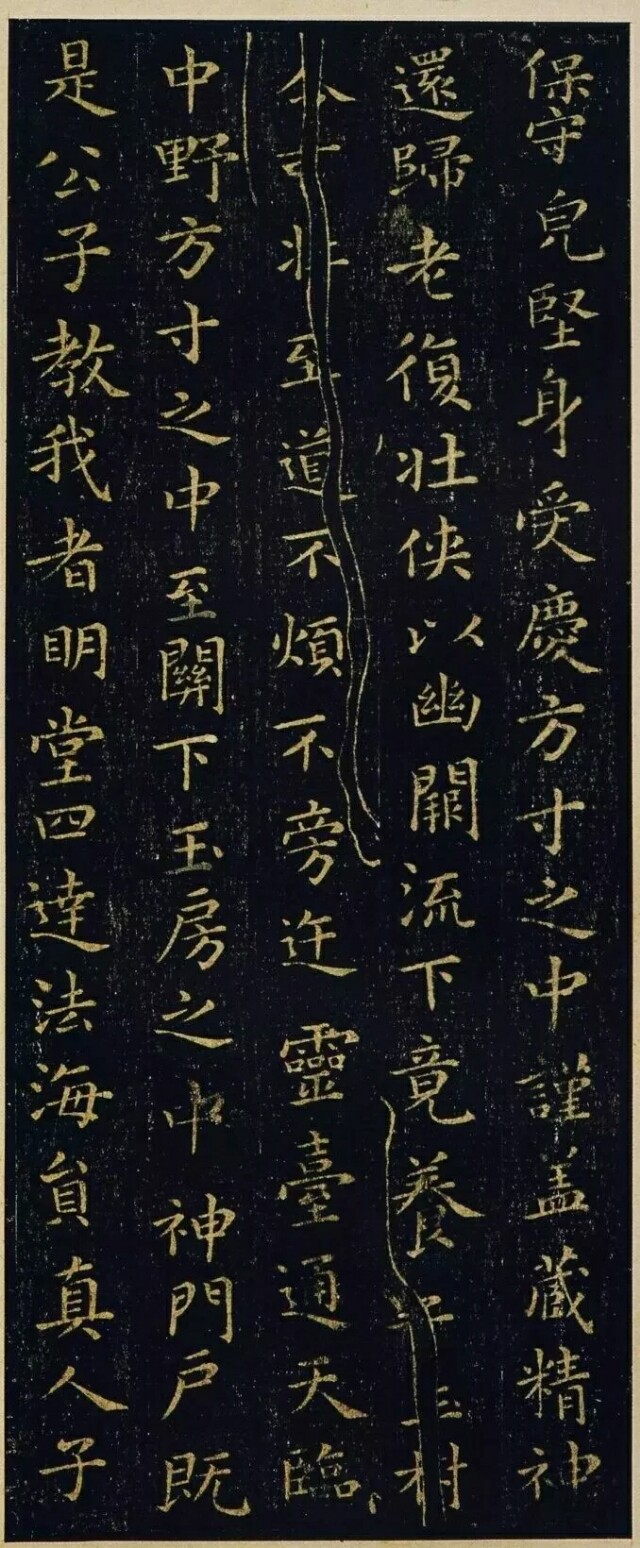 保守皃堅身受慶方寸之中謹盖藏精神
還歸老復壯俠以幽闕流下竟養子玉树
令可壯至道不煩不旁迕靈臺通天臨
中野方寸之中至關下玉房之中神門户既
是公子教我者明堂四達法海負真人子